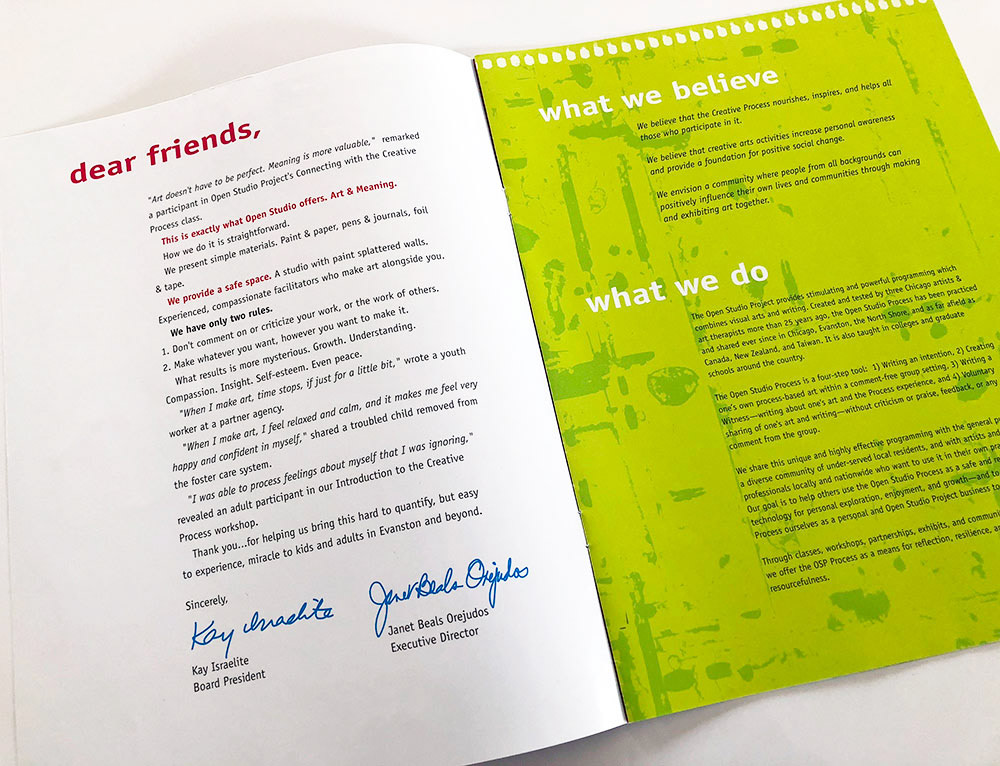 dear friends,
"Art doesn't have to be perfect. Meaning is more valuable," remarked
a participant in Open Studio Project's Connecting with the Creative
Process class.
This is exactly what Open Studio offers. Art & Meaning.
How we do it is straightforward.
We present simple materials. Paint & paper, pens & journals, foil
& tape.
We provide a safe space. A studio with paint splattered walls.
Experienced, compassionate facilitators who make art alongside you.
We have only two rules.
1. Don't comment on or criticize your work, or the work of others.
2. Make whatever you want, however you want to make it.
What results is more mysterious. Growth. Understanding.
Compassion. Insight. Self-esteem. Even peace.
"When I make art, time stops, if just for a little bit," wrote a youth
worker at a partner agency.
"When I make art, I feel relaxed and calm, and it makes me feel very
happy and confident in myself," shared a troubled child removed from
the foster care system.
"I was able to process feelings about myself that I was ignoring,"
revealed an adult participant in our Introduction to the Creative
Process workshop.
Thank you...for helping us bring this hard to quantify, but easy
to experience, miracle to kids and adults in Evanston and beyond.
Sincerely,
Kay Israelite
Janet Beals Orejudos
Kay Israelite
Board President
Janet Beals Orejudos
Executive Director
what we believe
We believe that the Creative Process nourishes, inspires, and helps all
those who participate in it.
We believe that creative arts activities increase personal awareness
and provide a foundation for positive social change.
We envision a community where people from all backgrounds can
positively influence their own lives and communities through making
and exhibiting art together.
what we do
The Open Studio Project provides stimulating and powerful programming which
combines visual arts and writing. Created and tested by three Chicago artists &
art therapists more than 25 years ago, the Open Studio Process has been practiced
and shared ever since in Chicago, Evanston, the North Shore, and as far afield as
Canada, New Zealand, and Taiwan. It is also taught in colleges and graduate
schools around the country.
The Open Studio Process is a four-step tool: 1) Writing an intention, 2) Creating
one's own process-based art within a comment-free group setting, 3) Writing a
Witness—writing about one's art and the Process experience, and 4) Voluntary
sharing of one's art and writing—without criticism or praise, feedback, or any
comment from the group.
We share this unique and highly effective programming with the general
a diverse community of under-served local residents, and with artists and
professionals locally and nationwide who want to use it in their own
Our goal is to help others use the Open Studio Process as a safe and
technology for personal exploration, enjoyment, and growth—and to
Process ourselves as a personal and Open Studio Project business
Through classes, workshops, partnerships, exhibits, and
we offer the OSP Process as a means for reflection, resilience,
resourcefulness.